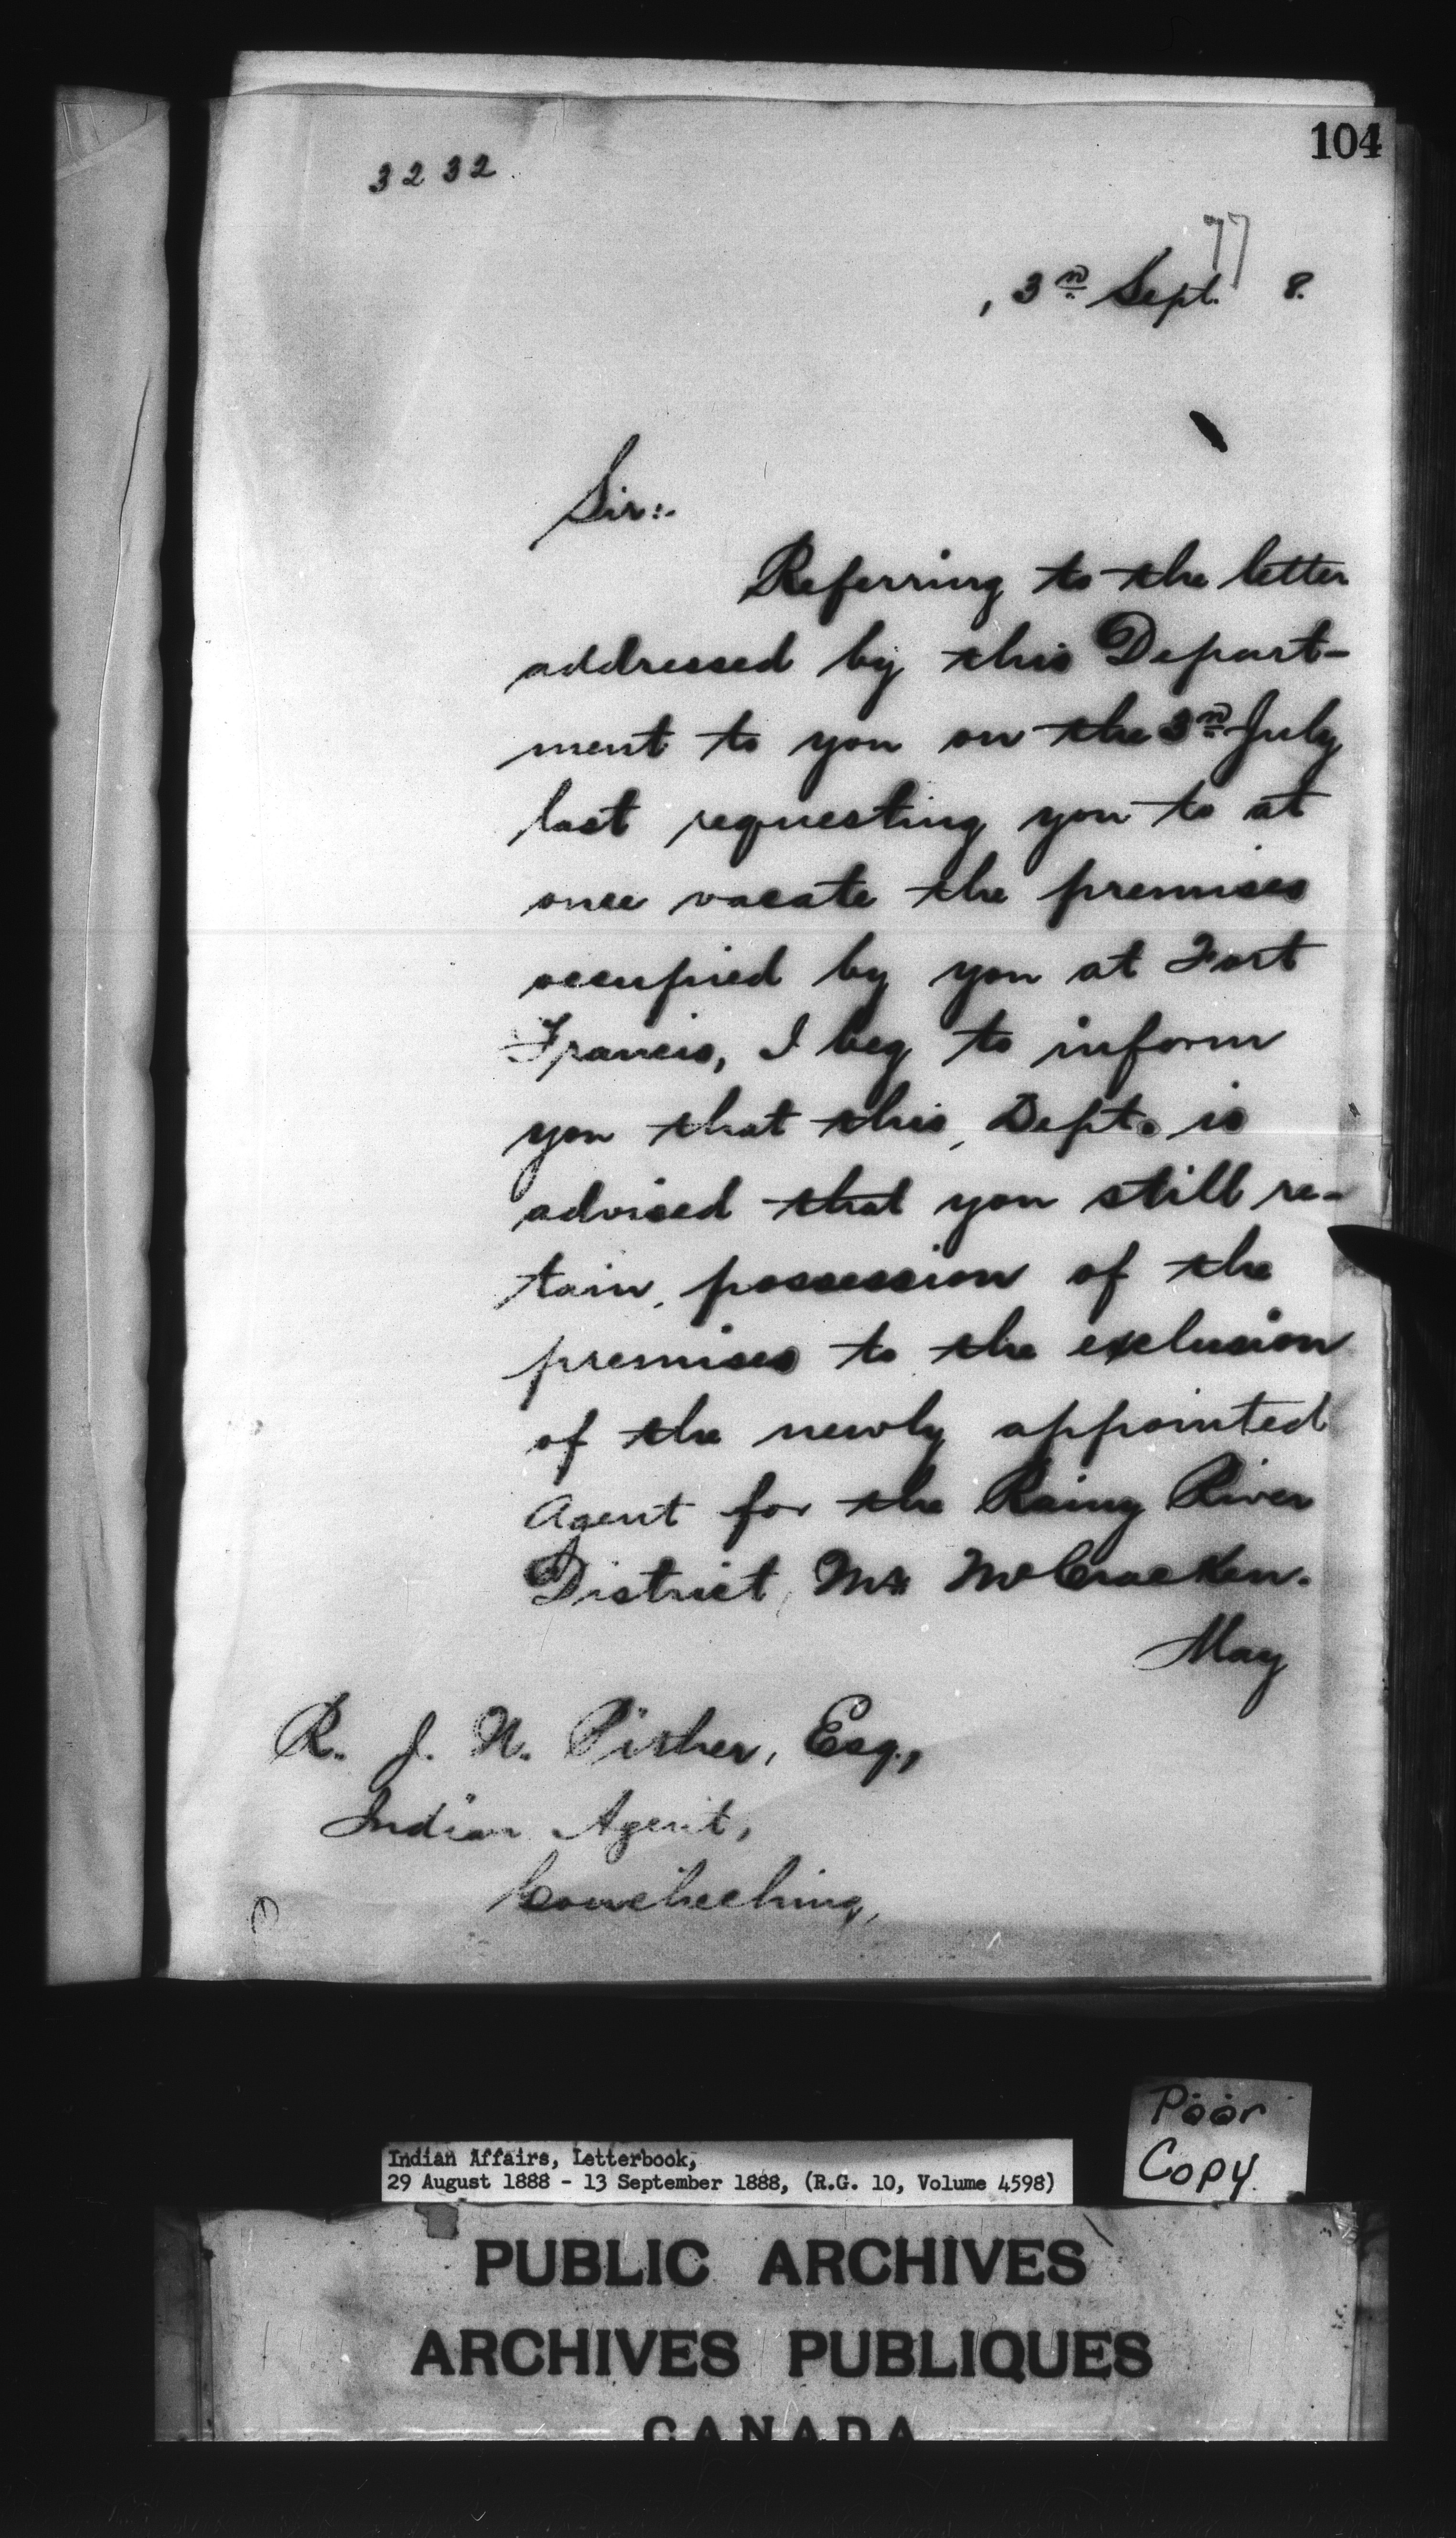 104
3232
77
, 3rd Sept. 8.
Sir:.
Referring to the letter
addressed by this Depart-
ment to you on the 3rd July
last requesting you to at
once vacate the premises
occupied by you at Fort
Francis, I beg to inform
you that this Dept. is
advised that you still re-
tain possession of the
premises to the exclusion
of the newly appointed
Agent for the Rainy River
District, Mr McCracken.
May
R. J. N. Pither, Esq.,
Indian Agent,
Couchiching,
Poor
Copy.
Indian Affairs, Letterbook,
29 August 1888 - 13 September 1888, (R.G. 10, Volume 4598)
PUBLIC ARCHIVES
ARCHIVES PUBLIQUES
CANADA